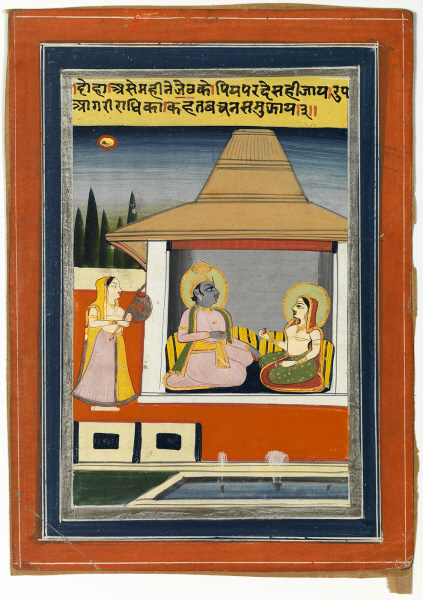 ।दोहा।असेमहीनेजेठकोपियपरदेसहीजाय।रुप
आगरीराधिकाकहतबचनसमुझाय।३॥